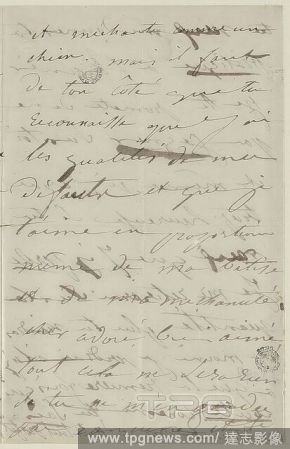 et méchante comme un
chien, mais il faut
de ton côté que tu
reconnaisse que j'ai
les qualités de mes
défauts et que je
t'aime en proportion
même de ma bêtise
et de ma méchanceté.
cher adoré bien aimé
tout cela ne sera rien
si tu
TPG
www.tpgnews.com/ 達志影像